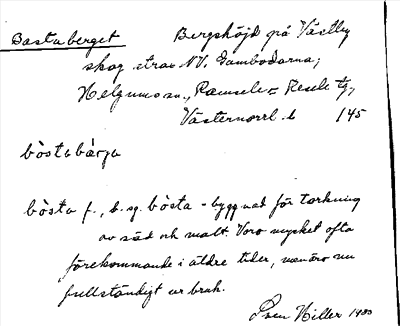 Bastuberget Bergshöjd på Västby
skog strax NV. Gamboðarna;
Helgums sn., Ramsele = Resele tg,
Västernorrl. l 145
böstabärga
bösta f., b. sg. bösta - byggnad för torkning
av säd och malt. Voro mycket ofta
förekommande i äldre tider, men äro nu
fullständigt ur bruk.
Hiller 1930